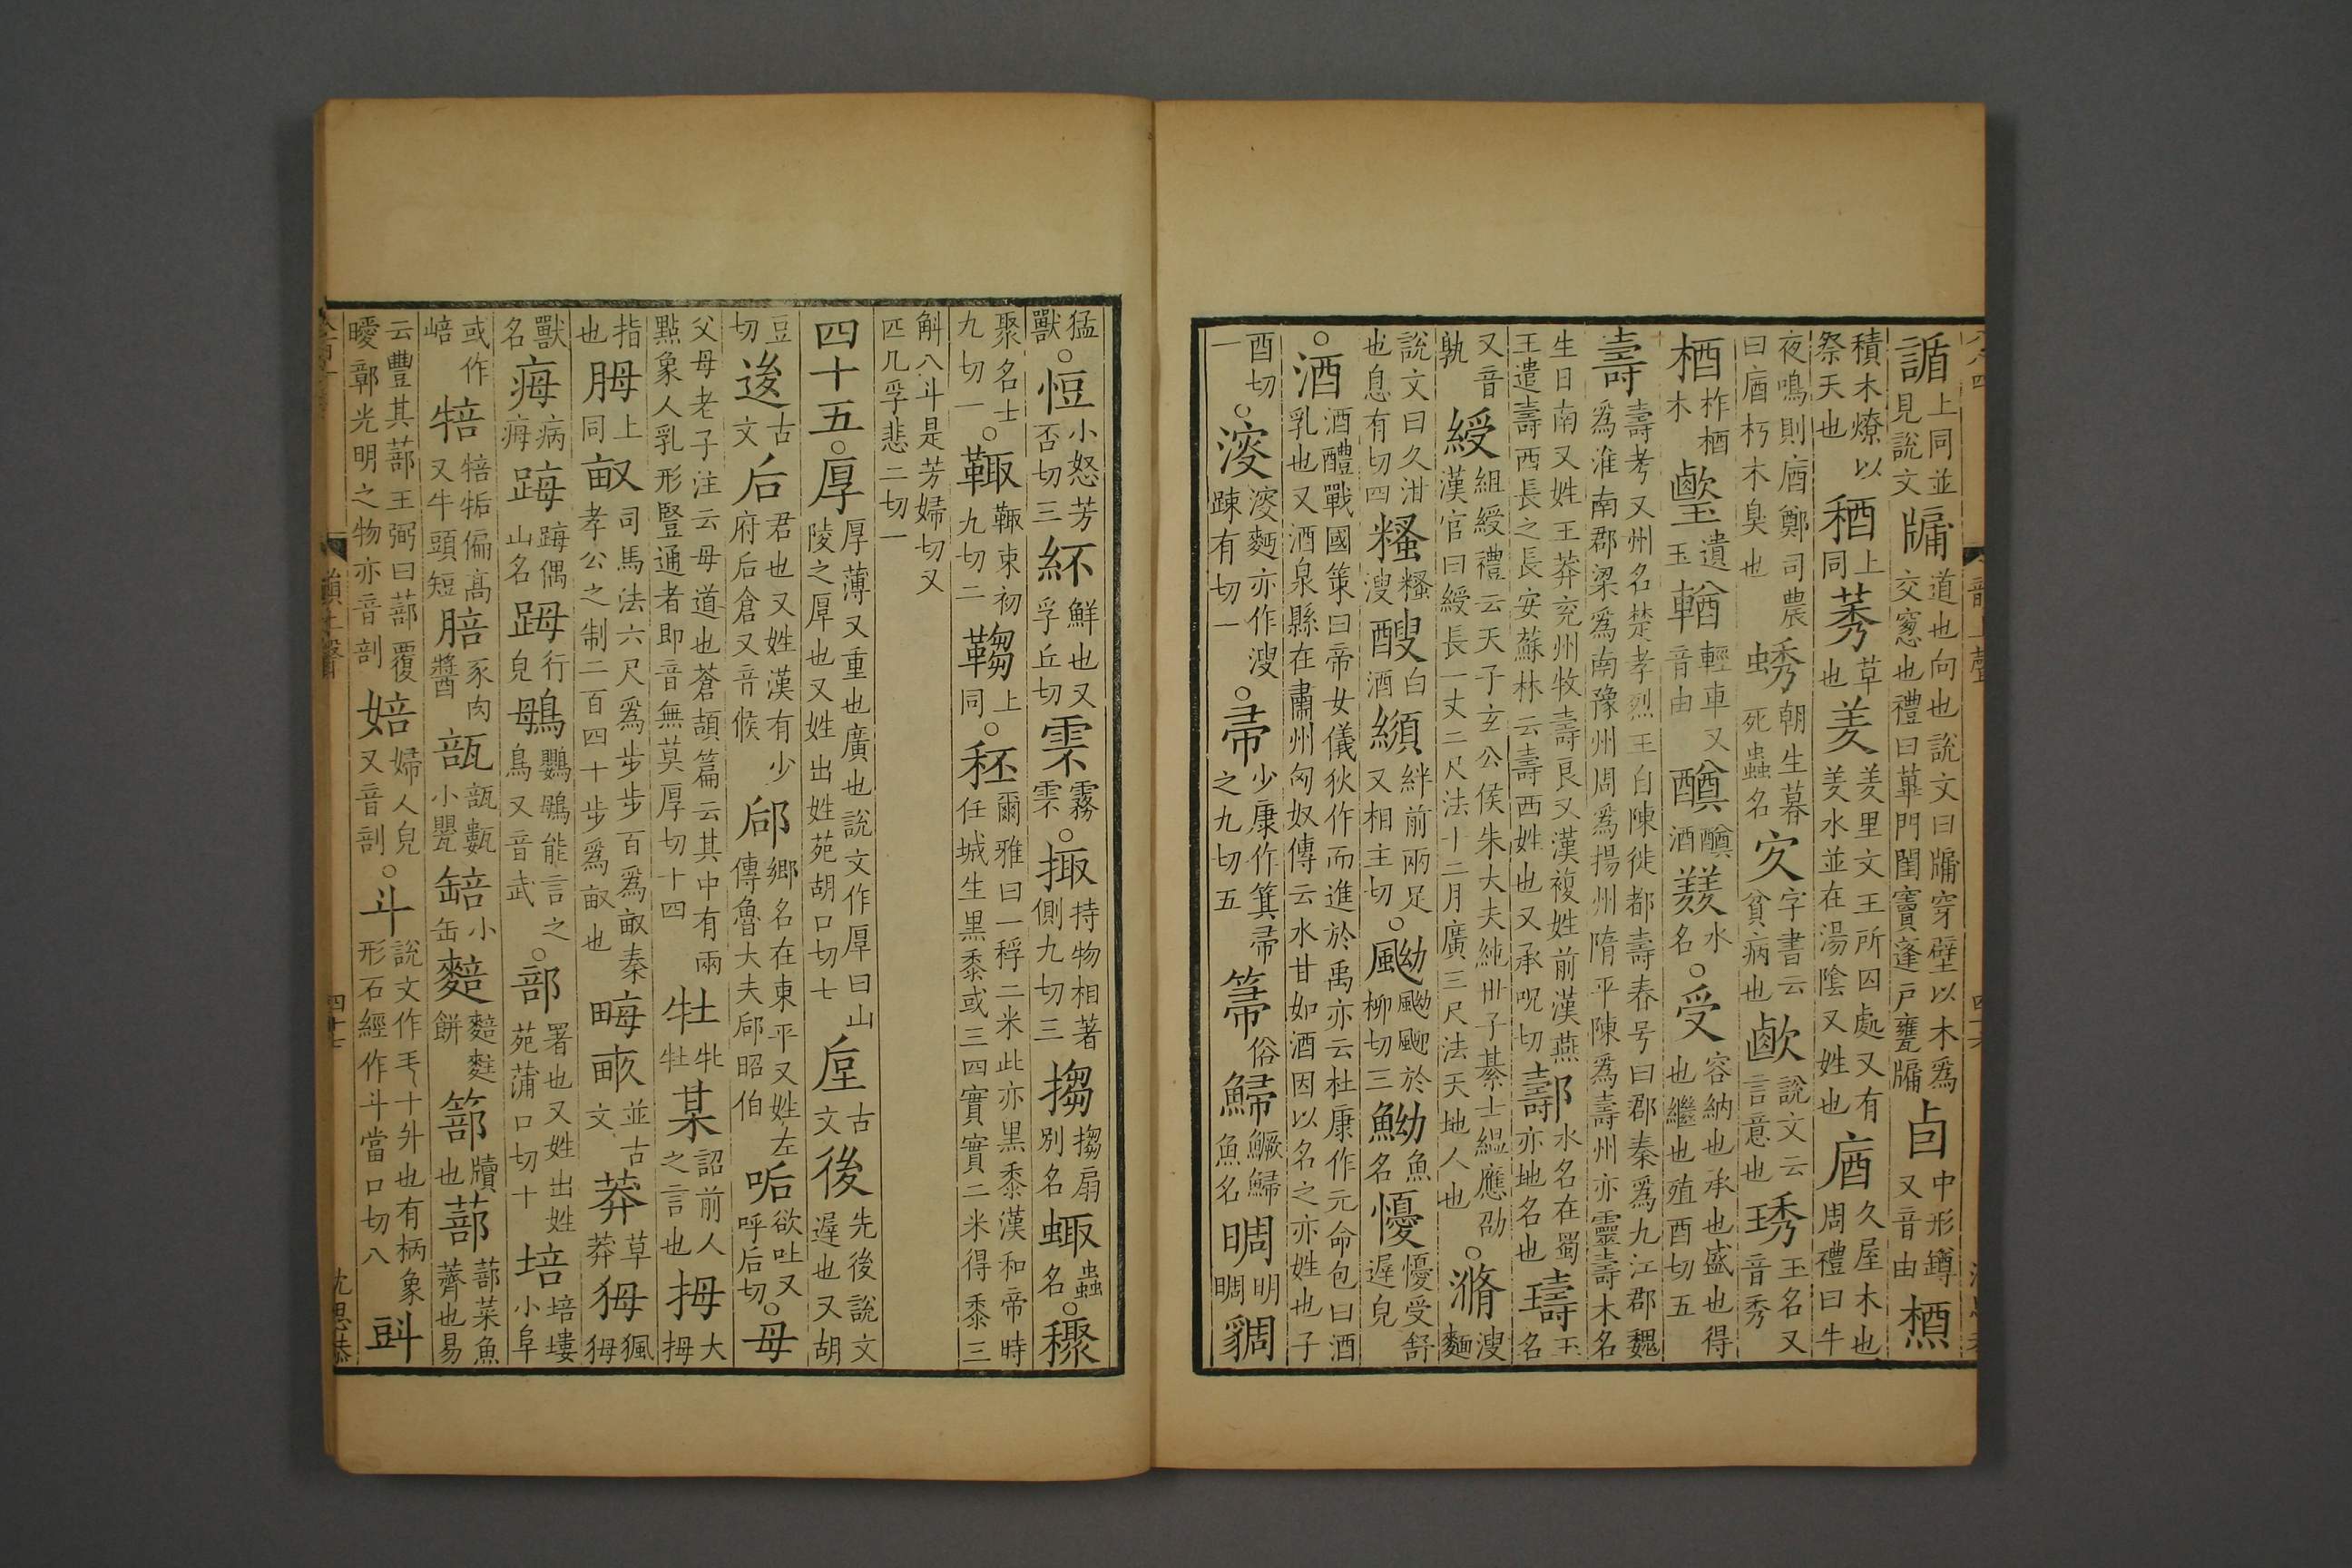 𧩈上同並見說文牖道也向也說文曰牖穿壁以木爲交窻也禮曰蓽門閨竇蓬戸甕牖卣中形罇又音由槱
積木燎以祭天也𥠃上同莠草也羑羑里文王所囚處又有羑水並在湯陰又姓也庮久屋木也周禮曰牛
夜鳴則庮鄭司農曰庮朽木臭也蜏朝生暮死蟲名㝌字書云貧病也歗說文云言意也琇玉名又音秀
楢柞楢木璓遺玉輶輕車又音由䤒䤒酒䍮水名○受容納也承也盛也得也繼也殖酉切五
壽壽考又州名楚考烈王自陳徙都壽春号曰郢秦爲九江郡魏爲淮南郡梁爲南豫州周爲揚州隋平陳爲壽州亦靈壽木名
生日南又姓王莽兖州牧壽良又漢複姓前漢燕王遣壽西長之長安蘇林云壽西姓也又承呪切鄯水名在蜀亦地名也璹玉名
又音孰綬組綬禮云天子玄公侯朱大夫純丗子綦士緼應劭漢官曰綬長一丈二尺法十二月廣三尺法天地人也○滫溲麵
說文曰久泔也息有切四糔糔溲醙白酒綇絆前兩足又相主切○䬀䬀䬀於柳切三䱂魚名懮懮受舒遲皃
○酒酒醴戰國策曰帝女儀狄作而進於禹亦云杜康作元命包曰酒乳也又酒泉縣在肅州匈奴傳云水甘如酒因以名之亦姓也子
酉切一○㴑㴑麪亦作溲踈有切一○帚少康作箕帚之九切五箒俗鯞鱖鯞魚名睭明睭䝬
猛獸○恒小怒芳否切三紑鮮也又孚丘切䨏霧䨏○掫持物相著側九切三㨶㨶扇別名䗮蟲名○䅳
聚名士九切一○䩳䩳束初九切二䪮上同○秠爾雅曰一稃二米此亦黑黍漢和帝時任城生黑黍或三四實實二米得黍三
斛八斗是芳婦切又匹几孚悲二切一
四十五○厚厚薄又重也廣也說文作厚曰山陵之厚也又姓出姓苑胡口切七垕古文後先後說文遲也又胡
豆切逡古文后君也又姓漢有少府后倉又音候郈鄉名在東平又姓左傳魯大夫郈昭伯㖃欲吐又呼后切○母
父母老子注云母道也蒼頡篇云其中有兩點象人乳形豎通者即音無莫厚切十四牡牝牡某詔前人之言也拇大拇
指也胟上同畝司馬法六尺爲步步百爲畝秦孝公之制二百四十步爲畝也畮畞並古文莽草莽㺳㺳
獸名痗病痗踇踇偶山名䟨行皃鴟鸚鵡能言之鳥又音武○部署也又姓出姓苑蒲口切十培培塿小阜
或作㟝㸬㸬牯偏高又牛頭短䏽豕肉醬瓿瓿甊小甖䍌小缶䴺䴺䴹餅篰牘也蔀蔀菜魚薺也易
云豐其蔀王弼曰蔀覆曖鄣光明之物亦音剖婄婦人皃又音剖○斗說文作𠦂十升也有柄象形石經作斗當口切八㪷